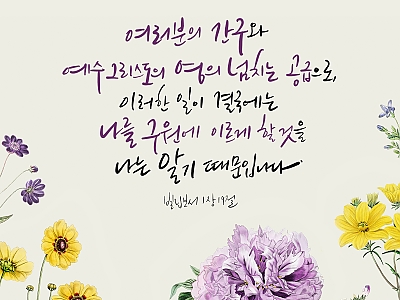 여러분의 간구와
예수 그리스도의 영의 넘치는 공급으로,
이러한 일이 결국에는
나를 구원에 이르게 할 것을
나는 알기 때문입니다.
빌립보서 1장 19절